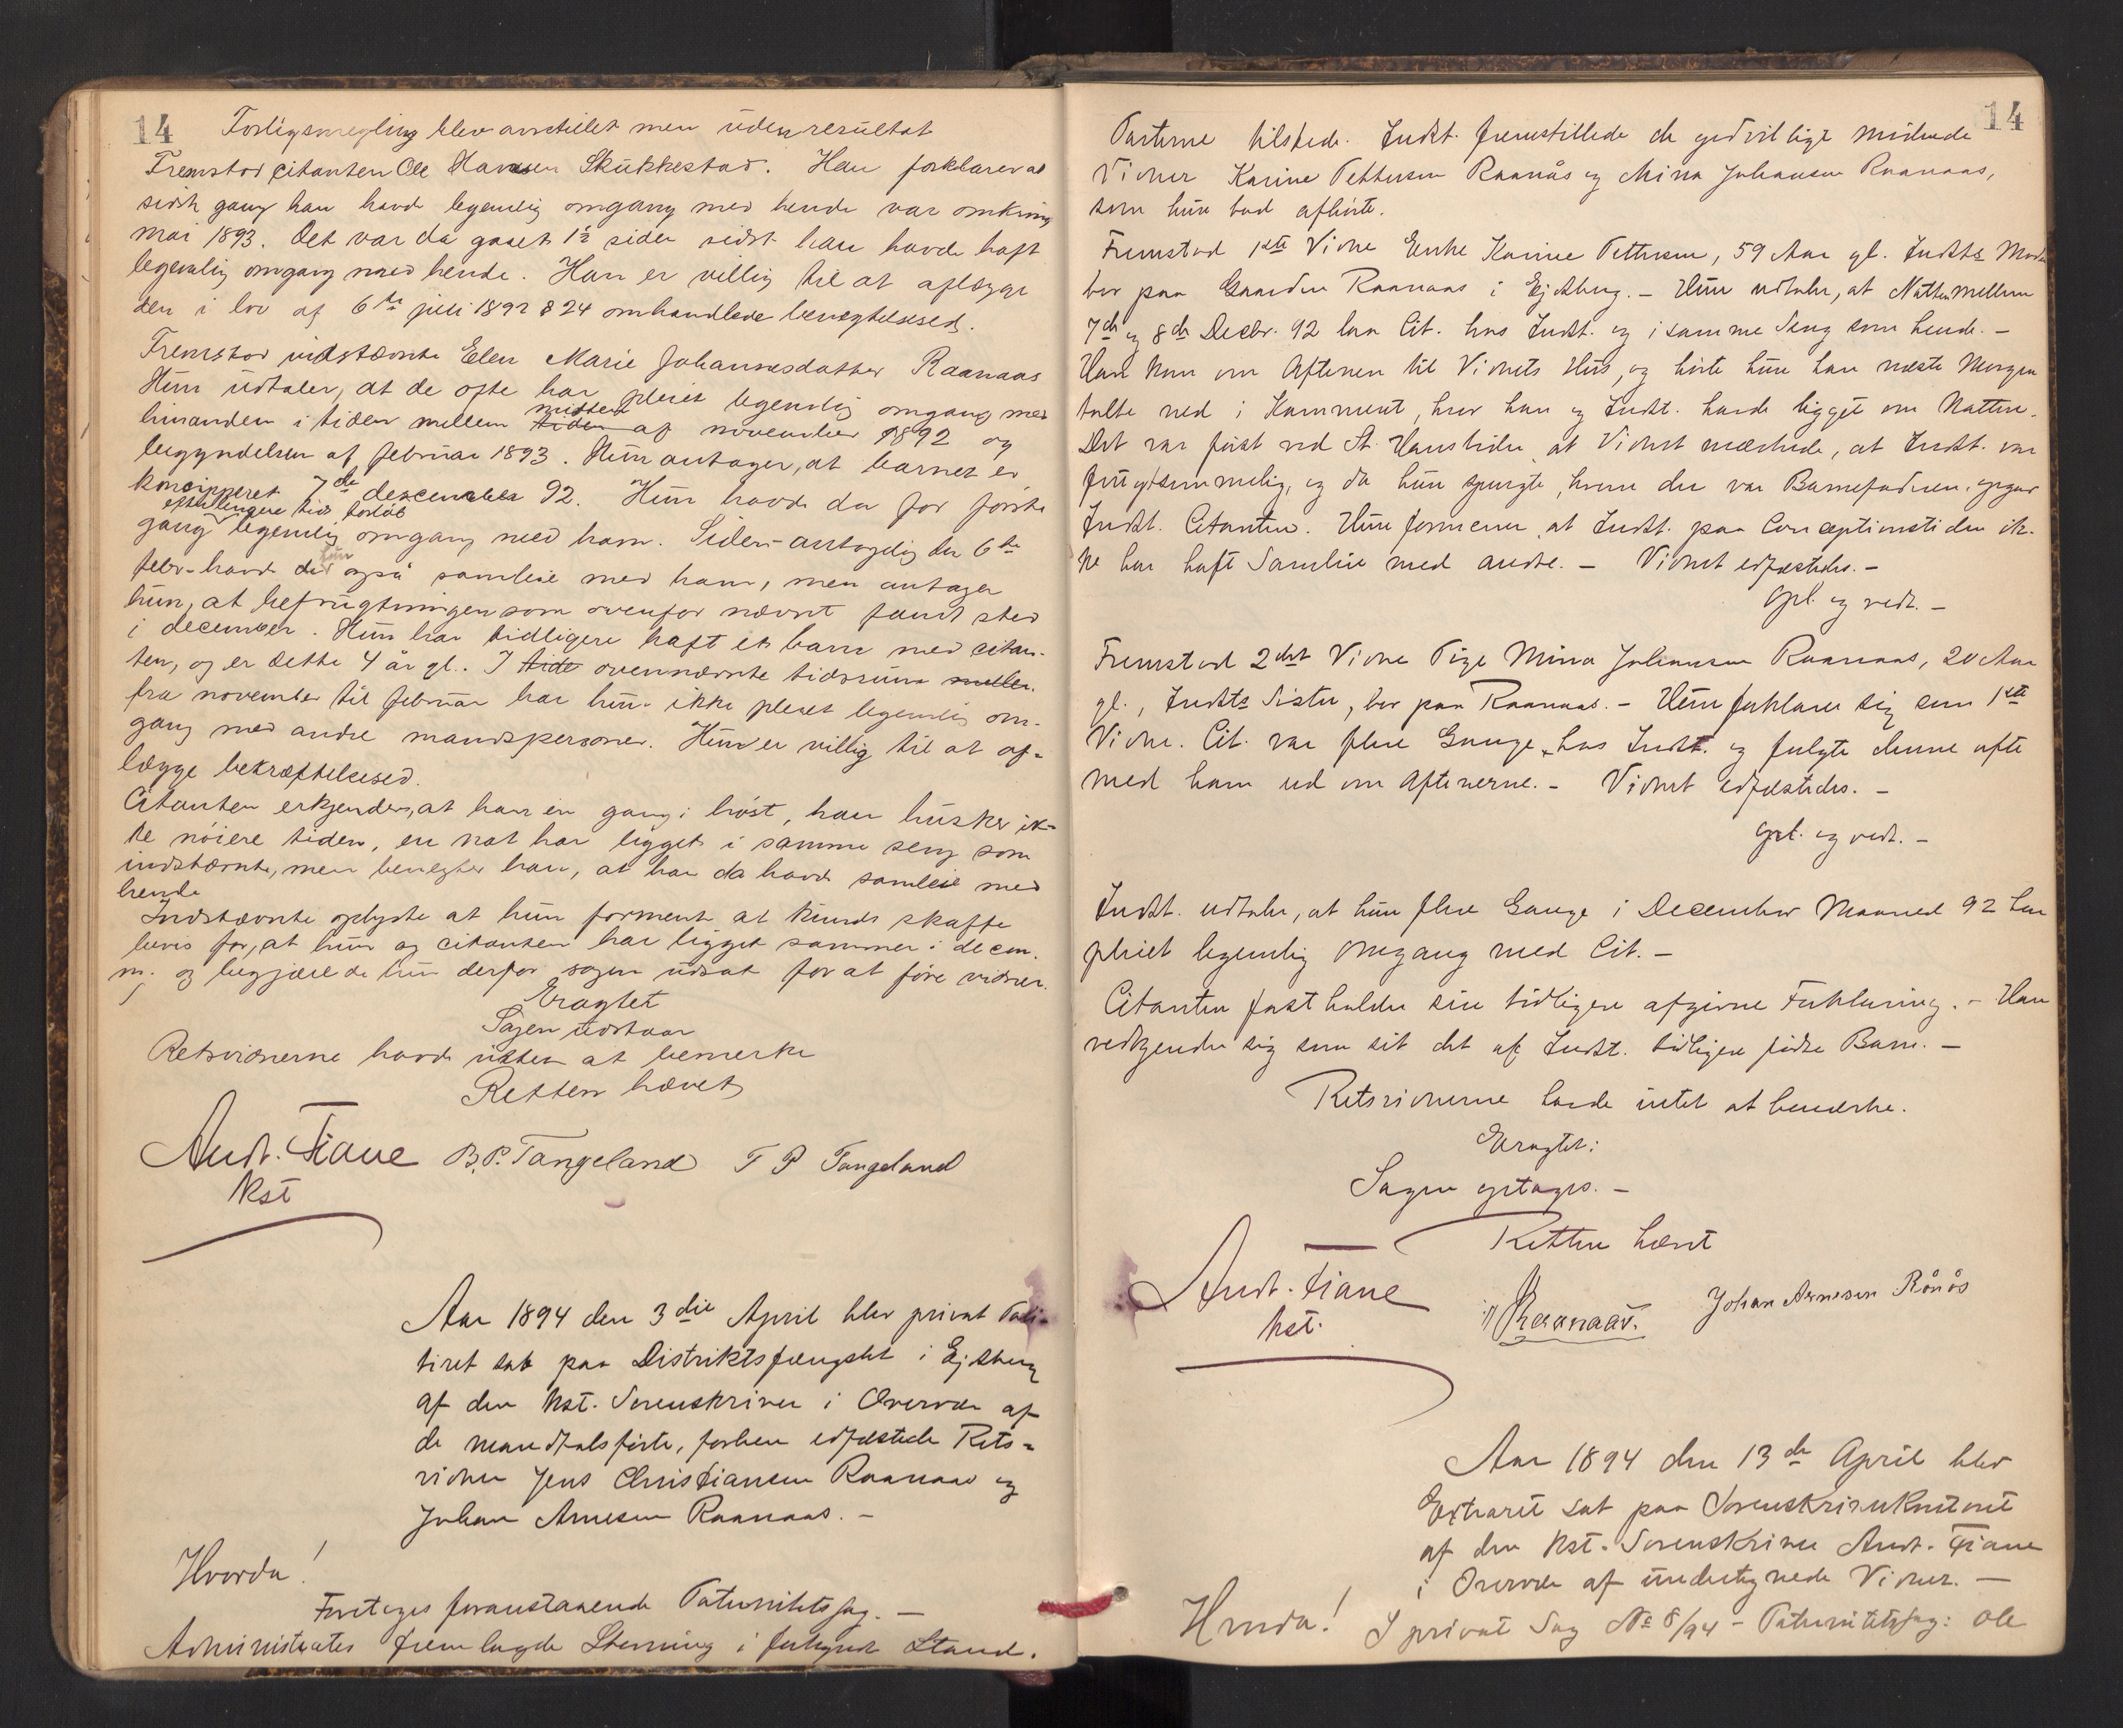 14
Forligsmegling blev anstillet men uden resultat
Fremstod citanten Ole Hansen Skukkestad. Han forklarer at
sidste gang han havde legemlig omgang med hende var omkring
mai 1893. Det var da gaaet 1½ siden sidst han havde haft
legemlig omgang med hende. Han er villig til at aflægge
den i lov af 6te juli 1892 § 24 omhandlede benegtelsesed.
Fremstod indstævnte Elen Marie Johannesdatter Raanaas
Hun udtaler, at de ofte har pleiet legemlig omgang med
hinanden i tiden mellem tiden midten af november 1892 og
begyndelsen af februar 1893. Hun antager, at barnet er
koncipieret 7de december 92. Hun havde da for første
gang efter længere tids forløb legemlig omgang med ham. Siden antagelig den 6te
febr. havde hun også samleie med ham, men antager
hun, at befrugtningen som ovenfor nævnt fandt sted
i december. Hun har tidligere haft et barn med citan-
ten, og er dette 4 år gl. I tide ovennævnte tidsrum mellem
fra november til februar har hun ikke pleiet legemlig om-
gang med andre mandspersoner. Hun er villig til at af-
lægge bekræftelsesed.
Citanten erkjender, at han en gang i høst, han husker ik-
ke nøiere tiden, en nat har ligget i samme seng som
indstævnte, men benegter han, at han da havde samleie med
hende
Indstævnte oplyste at hun formente at kunde skaffe
bevis for, at hun og citanten har ligget sammen i decem.
m. og begjærede hun derfor sagen udsat for at føre vidner.
Eragtet
Sagen udstaar
Retsvidnerne havde intet at bemerke
Retten hævet
Andr. Fiane B. P. Tangeland T P Tangeland
kst
Aar 1894 den 3die April blev privat Poli-
tiret sat paa Distriktsfængslet i Ejdsberg
af den kst. Sorenskriver i Overvær af
de mandtalsførte, forhen edfæstede Rets-
vidner Jens Christiansen Raanaas og
Johan Arnesen Raanaas. -
Hvorda!
Foretoges foranstaaende Paternitetssag. -
Administrator fremlagde Stevning i forkyndt Stand.
14
Parterne tilstede. Indst. fremstillede de godvilligt mødende
Vidner Karine Pettersen Raanås og Mina Johansen Raanaas,
som hun bad afhørte.
Fremstod 1ste Vidne Enke Karine Pettersen, 59 Aar gl. Indsts Moder
bor paa Gaarden Raanaas i Ejdsberg. - Hun udtaler, at Natten mellem
7de og 8de Decbr. 92 laa Cit. hos Indst. og i samme Seng som hende. -
Han kom om Aftenen til Vidnets Hus, og hørte hun han næste Morgen
talte ned i Kammeret, hvor han og Indst. havde ligget om Natten.
Det var først ved St. Hanstider, at Vidnet mærkede, at Indst. var
frugtsommelig, og da hun spurgte, hvem der var Barnefaderen, opgav
Indst. Citanten. Hun formener, at Indst. paa Conceptionstiden ik-
ke har haft Samleie med andre. - Vidnet edfæstedes. -
Opl. og vedt. -
Fremstod 2det Vidne Pige Mina Johansen Raanaas, 20 Aar
gl., Indsts Søster, bor paa Raanaas. - Hun forklarer sig som 1ste
Vidne. Cit. var flere Gange hos Indst. og fulgte denne ofte
med ham ud om Aftenerne. - Vidnet edfæstedes. -
Opl. og vedt. -
Indst. udtaler, at hun flere Gange i December Maaned 92 har
pleiet legemlig Omgang med Cit. -
Citanten fastholder sin tidligere afgivne Forklaring. - Han
vedkjender sig som sit det af Indst. tidligere fødte Barn. -
Retsvidnerne havde intet at bemærke.
Eragtet:
Sagen optages. -
Retten hævet
Andr. Fiane
kst.
Raanaas.
Johan Arnesen Rånås
Aar 1894 den 13de April blev
Extraret sat paa Sorenskriverkontoret
af den kst. Sorenskriver Andr. Fiane
i Overvær af undertegnede Vidner. -
Hvorda! I privat Sag No 8/94 - Paternitetssag: Ole